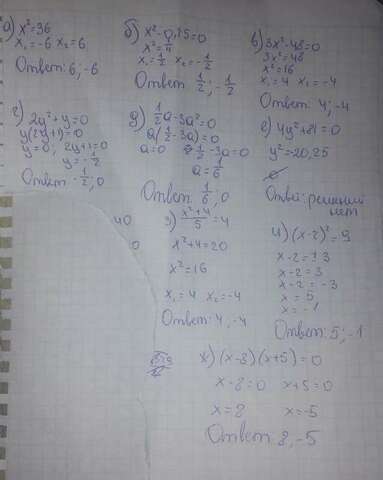 а) x²=36
x₁=-6 x₂=6
Ответ: 6; -6
б) x²-0,25=0
x²=1/4
x₁=1/2 x₂=-1/2
Ответ 1/2; -1/2
в) 3x²-48=0
3x²=48
x²=16
x₁=4 x₂=-4
Ответ: 4; -4
г) 2y²+y=0
y(2y+1)=0
y=0; 2y+1=0
y=-1/2
Ответ -1/2; 0
д) 1/2a-3a²=0
a(1/2-3a)=0
a=0 1/2-3a=0
a=1/6
Ответ: 1/6; 0
е) 4y²+81=0
y²=-20,25
∅
Ответ: решений
нет
з) (x²+4)/5=4
x²+4=20
x²=16
x₁=4 x₂=-4
Ответ: 4, -4
и) (x-2)²=9
x-2=±3
x-2=3
x-2=-3
x=5
x=-1
Ответ: 5; -1
ж) (x-8)(x+5)=0
x-8=0 x+5=0
x=8 x=-5
Ответ: 8, -5